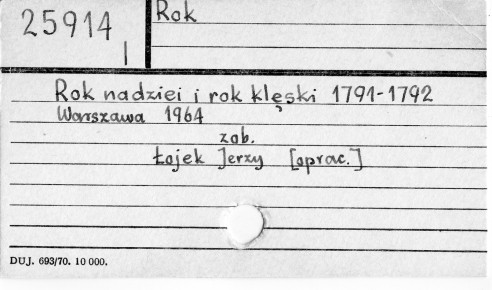 25914
I
Rok
Rok nadziei i rok klęski 1791-1792
Warszawa 1964
zob.
Łojek Jerzy [oprac.]
DUJ. 693/70. 10 000.